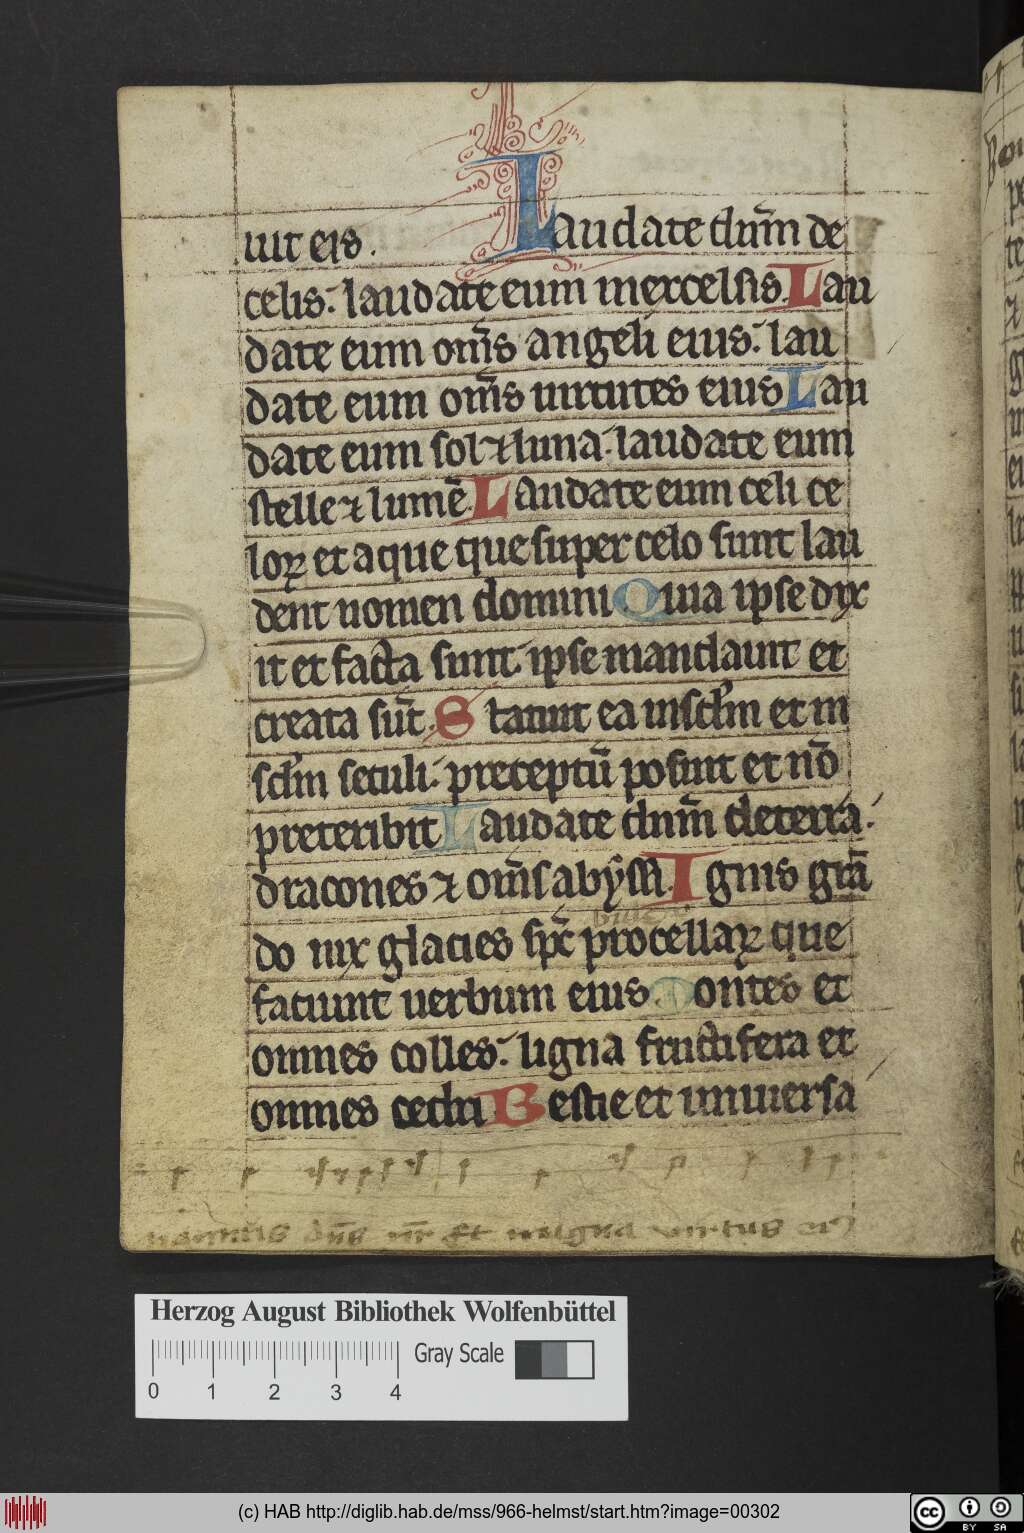 uit eis. Laudate dn̄m de
celis: laudate eum in excelsis. Lau
date eum om̄s angeli eius: lau
date eum om̄s uirtutes eius Lau
date eum sol ⁊ luna: laudate eum
stelle ⁊ lumē. Laudate eum celi ce
loꝝ et aque que super celo sunt lau
dent nomen domini Quia ipse dix
it et facta sunt: ipse mandauit et
creata sūt. Statuit ea in sclm̄ et in
sclm̄ seculi: preceptū posuit et nō
preteribit Laudate dn̄m de terra:
dracones ⁊ om̄s abyssi. Ignis grā
do nix glacies sp̄c procellaꝝ que
faciunt uerbum eius Montes et
omnes colles: ligna fructifera et
omnes cedri Bestie et uniuersa
magnus dn̄s nr̄ Et magna uirtus eiꝰ
Herzog August Bibliothek Wolfenbüttel
Gray Scale
0 1 2 3 4
(c) HAB http://diglib.hab.de/mss/966-helmst/start.htm?image=00302
cc BY SA